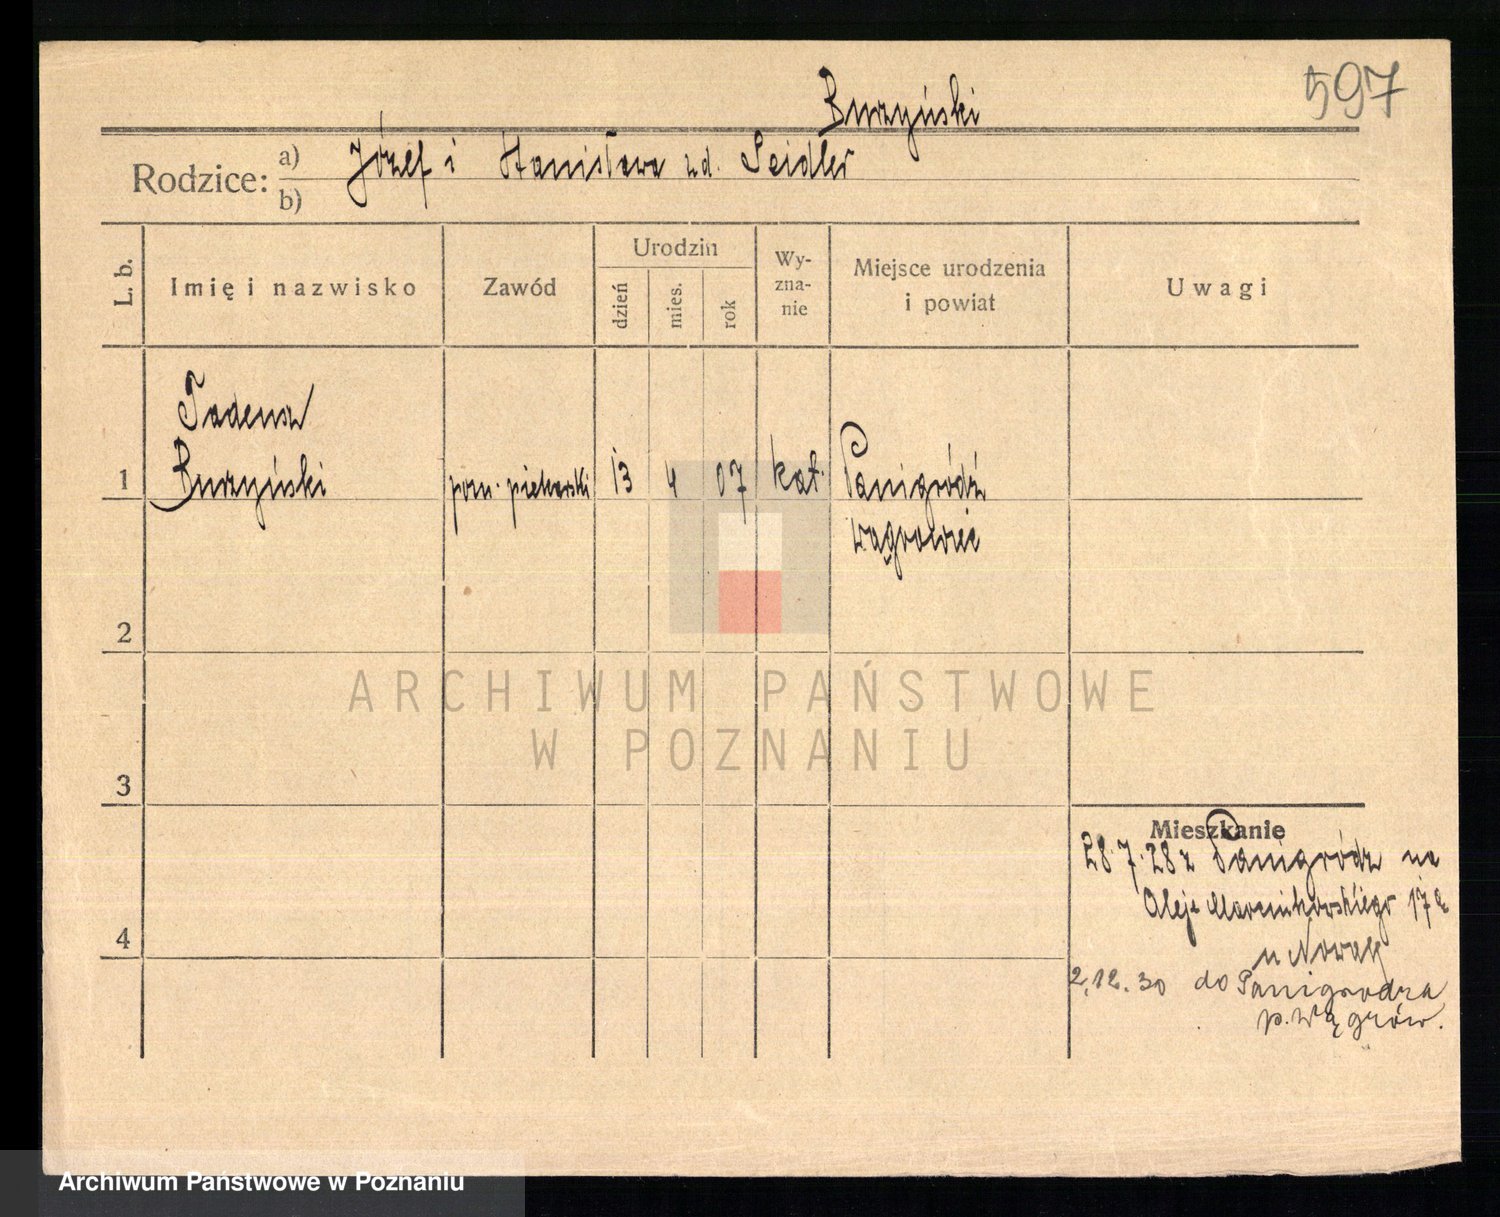 597
Burzyński
Rodzice: a) Józef i Stanisława zd. Seidler
b)
L. b. Imię i nazwisko Zawód Urodzin dzień mies. rok Wyznanie Miejsce urodzenia i powiat Uwagi
Tadeusz
1 Burzyński pom. piekarski 13 4 07 kat. Panigródź
wągrowiec
2
ARCHIWUM PAŃSTWOWE
W POZNANIU
3
Mieszkanie
28.7.28 z Panigródz na
Aleje Marcinkowskiego 17a
4
u Nowak
2.12.30 do Panigrodza
p. Wągrów.
Archiwum Państwowe w Poznaniu